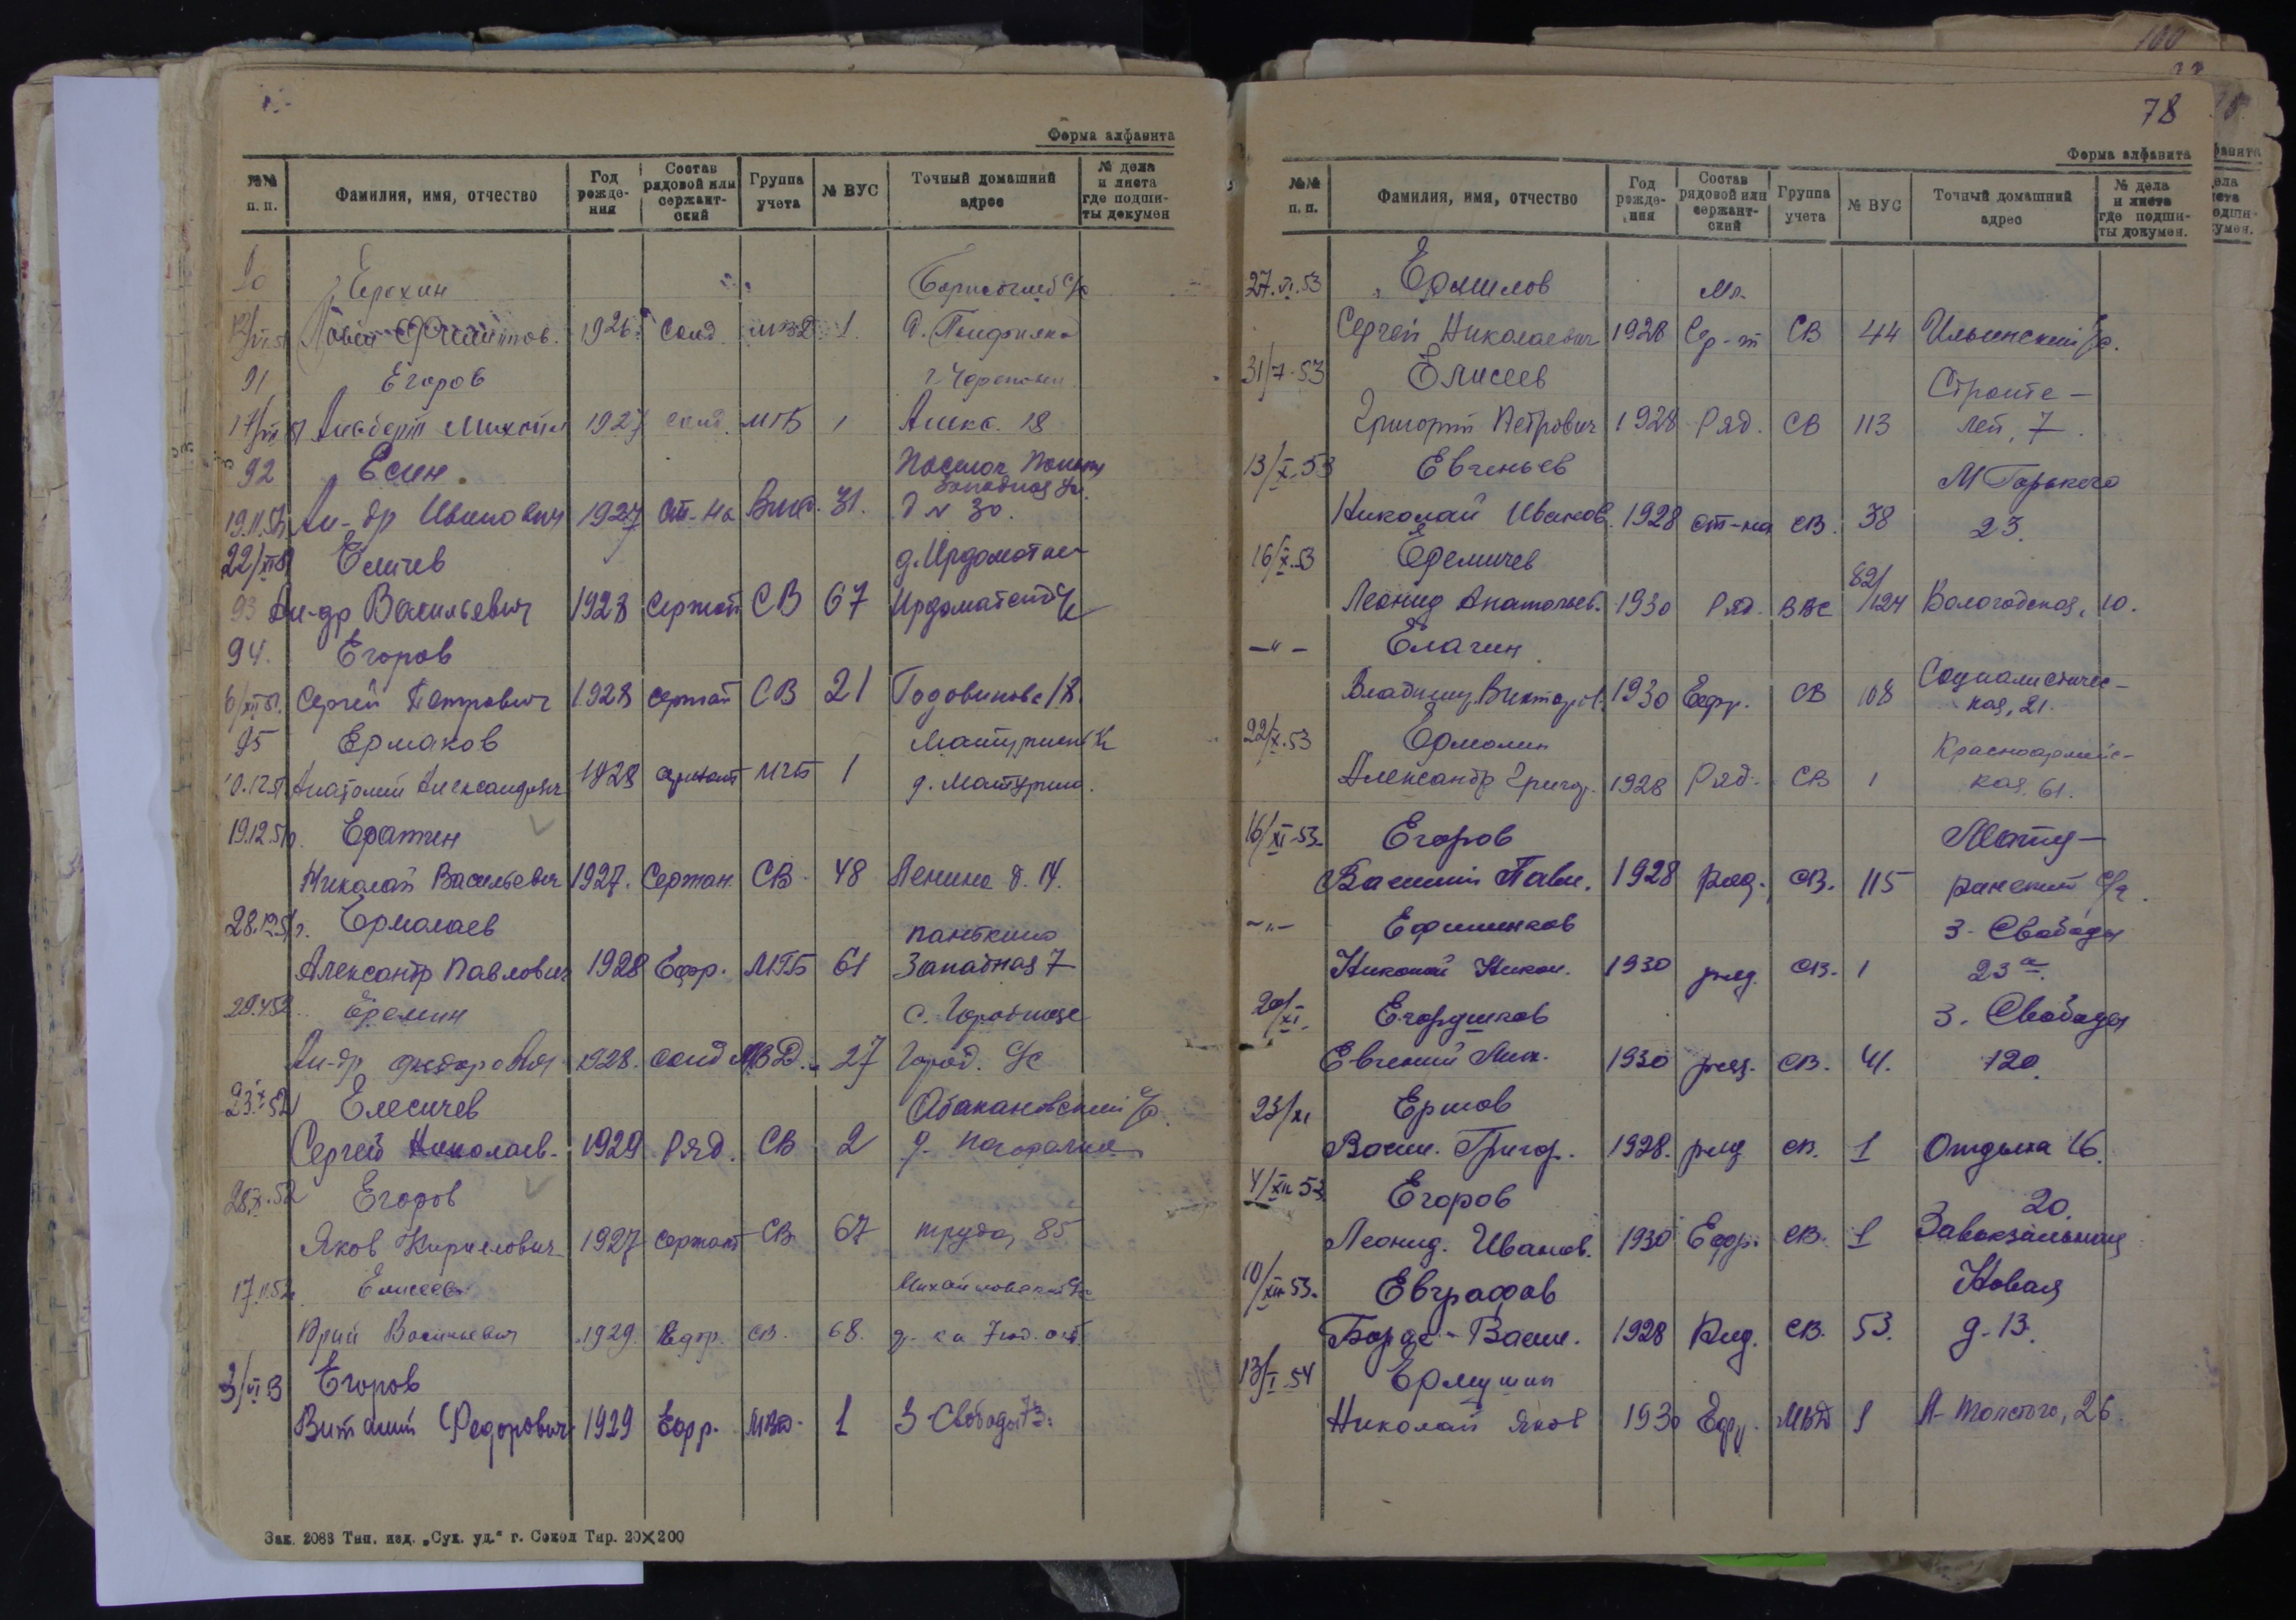 Форма алфавита
№№ п. п. Фамилия, имя, отчество Год рожде- ния Состав рядовой или сержант- ский Группа учета № ВУС Точный домашний адрес № дела и листа где подши- ты докумен
Ерохин Борисоглеб с/с
1926 Солд 1.
91 Егоров г. Череповец
Михайл 1927 солд МГБ 1 18
92 Есин
Западная ул.
19.11.51 Ал-др Иванович 1927 Ст-на 31. д № 30.
Еличев д. Ирдоматка
93 Ал-др Васильевич 1928 Сержант СВ 67 Ирдоматский
94. Егоров
6/XII 51. Сергей Петрович 1928 сержант СВ 21 Годовикова 18.
95 Ермаков Матуринск
Анатолий Александрович 1928 сержант МГБ 1 д. Матурино.
19.12.51г. Ератин
Николай Васильевич 1927. Сержан. СВ 48 Ленина д. 14.
28.12.51г. Ермолаев панькино
Александр Павлович 1928 Ефр. МГБ 61 Западная 7
29.4.52 Еремин с. Городище
Ал-др Федорович 1928. солд МВД. 27 Город. с/с
Елесичев Абакановский с/с
Сергей Николаев. 1929 Ряд. СВ 2 д.
28.X.52 Егоров
Яков Кириллович 1927 сержант СВ 67 труда, 85
Елисеев Михайловский
Юрий Васильевич 1929. Ефр. СВ. 68.
3/VI 53 Егоров
Виталий Федорович 1929 Ефр. МВД. 1 З-Свободы 73.
Зак. 2088 Тип. изд. „Сух. уд.“ г. Сокол Тир. 20×200
78
Форма алфавита
№№ п. п. Фамилия, имя, отчество Год рожде- ния Состав рядовой или сержант- ский Группа учета № ВУС Точный домашний адрес № дела и листа где подши- ты докумен.
27.VI.53 Ермилов Мл.
Сергей Николаевич 1928 Сер-т СВ 44 Ильинский с/с.
31/7-53 Елисеев Строите-
Григорий Петрович 1928 Ряд. СВ 113 лей, 7.
13/X-53 Евгеньев М Горького
Николай Иванов. 1928 ст-на СВ. 38 23.
16/X-53 Еделичев 82/
Леонид Анатольев. 1930 Ряд. ВВС 124 Вологодская, 10.
—"— Елагин Социалистичес-
Владимир Виктор. 1930 Ефр. СВ 108 кая, 21.
22/X.53 Ермолин Красноармейс-
Александр Григор. 1928 Ряд. СВ 1 кая. 61.
16/XI-53. Егоров Мату-
Василий Павл. 1928 ряд. СВ. 115 ринский с/с.
—"— Ефишенков З-Свободы
Николай Никол. 1930 ряд. СВ. 1 23а.
20/XI. Егордшков З. Свободы
Евгений 1930 ряд. СВ. 41. 120.
23/XI Ершов
Васил. Григор. 1928. ряд СВ. 1 Отдыха 16.
4/XII 53 Егоров 20.
Леонид. Иванов. 1930 Ефр. СВ. 1 Завокзальная
10/XII-53. Евграфов Новая
Борис Васил. 1928 Ряд. СВ. 53. д-13.
13/I-54 Ермушин
Николай Яков 1930 Ефр. МВД 1 А-Толстого, 26.